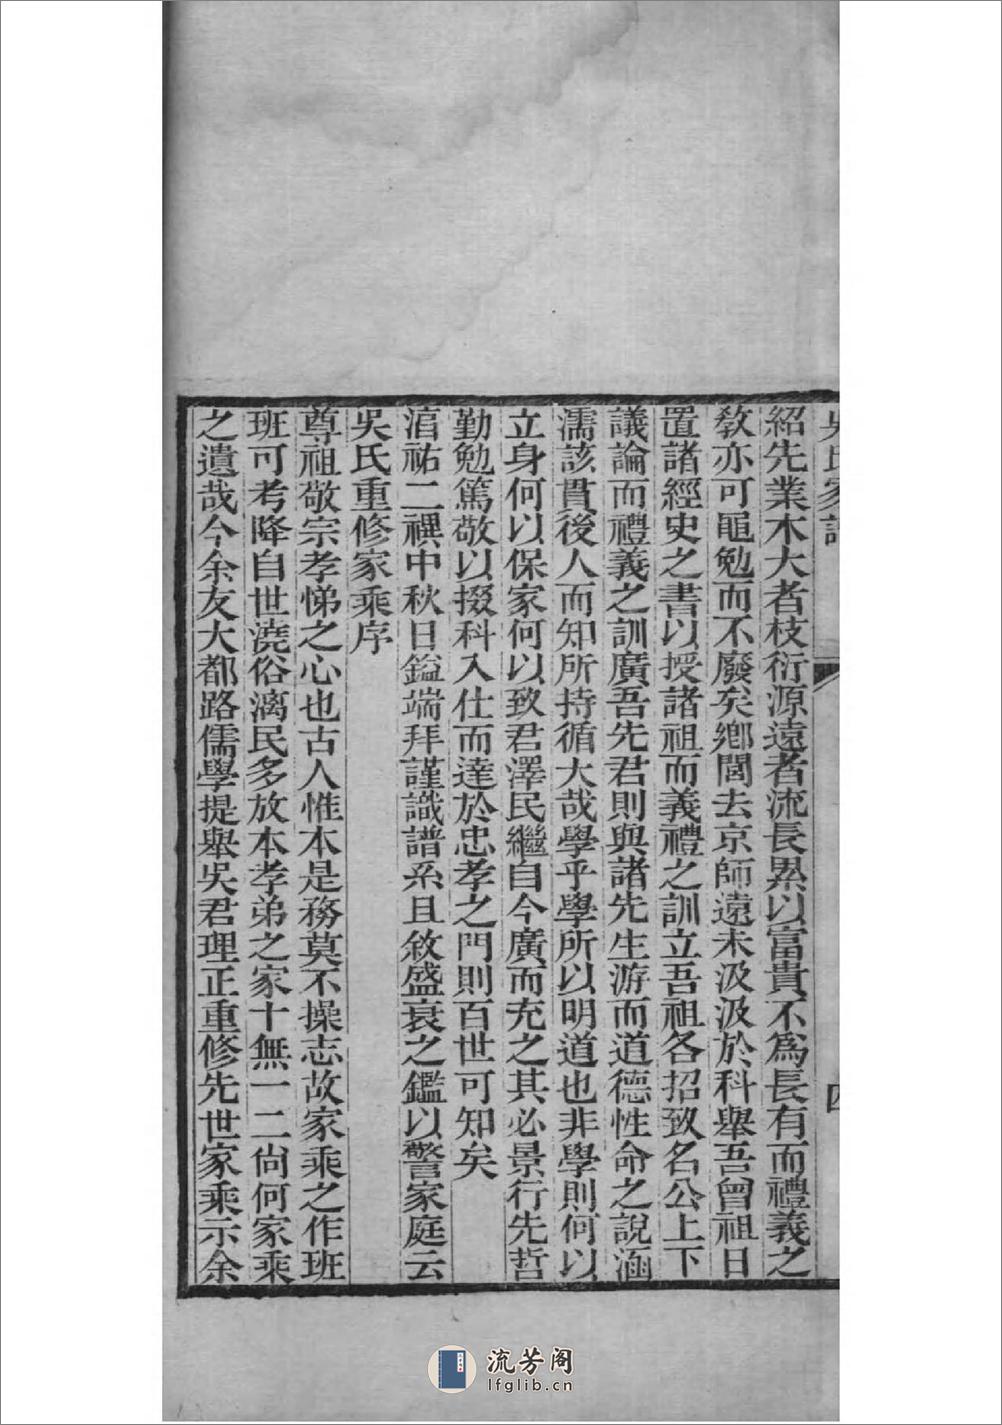 吳氏家譜
四
紹先業木大者枝衍源遠者流長累以富貴不爲長有而禮義之
敎亦可黽勉而不廢矣鄕閭去京師遠未汲汲於科舉吾曾祖日
置諸經史之書以授諸祖而義禮之訓立吾祖各招致名公上下
議論而禮義之訓廣吾先君則與諸先生游而道德性命之說涵
濡該貫後人而知所持循大哉學乎學所以明道也非學則何以
立身何以保家何以致君澤民繼自今廣而充之其必景行先哲
勤勉篤敬以掇科入仕而達於忠孝之門則百世可知矣
淯祐二禩中秋日鎰端拜謹識譜系且敘盛衰之鑑以警家庭云
吳氏重修家乘序
尊祖敬宗孝悌之心也古人惟本是務莫不操志故家乘之作班
班可考降自世澆俗漓民多放本孝弟之家十無一二尙何家乘
之遺哉今余友大都路儒學提舉吳君理正重修先世家乘示余
流芳阁
lfglib.cn